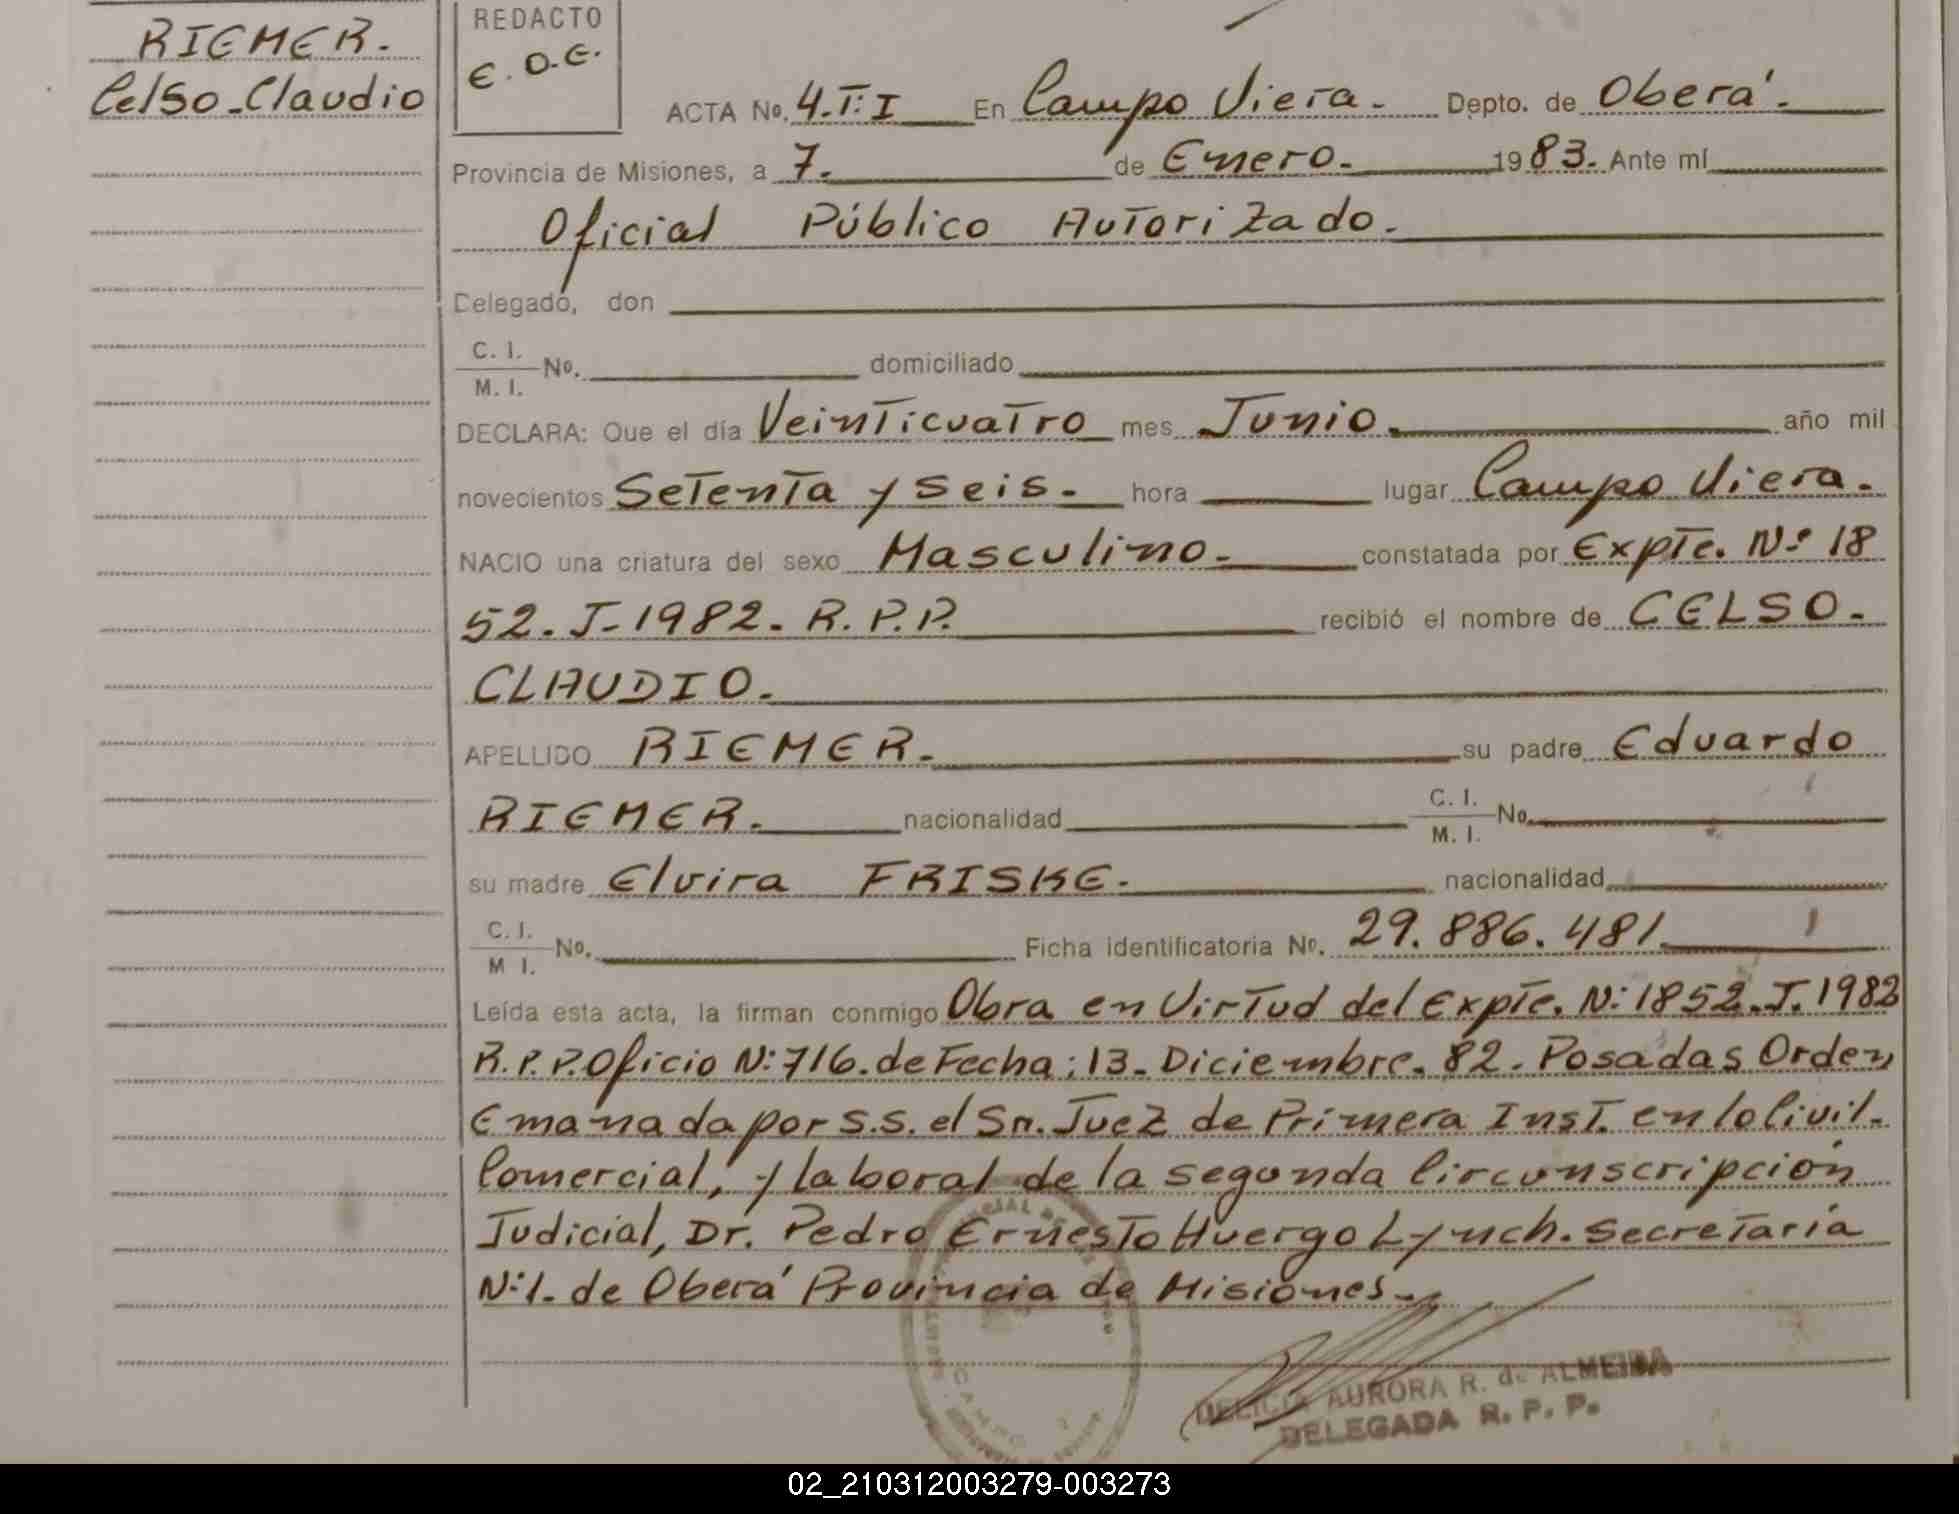 RIEMER.
Celso-Claudio
REDACTO
E.O.E.
ACTA No. 4.T:I En Campo Viera. Depto. de Oberá.
Provincia de Misiones, a 7. de Enero. 1983. Ante mí
Oficial Público Autorizado.
Delegado, don
C. I.
M. I. No. domiciliado
DECLARA: Que el día Veinticuatro mes Junio. año mil
novecientos Setenta y Seis. hora lugar Campo Viera.
NACIO una criatura del sexo Masculino. constatada por Expte. Nº 18
52. J-1982. R.P.P. recibió el nombre de CELSO.
CLAUDIO.
APELLIDO RIEMER. su padre Eduardo
RIEMER. nacionalidad C. I. M. I. No.
su madre Elvira FRISKE. nacionalidad
C. I. M I. No. Ficha identificatoria No. 29.886.481
Leída esta acta, la firman conmigo Obra en Virtud del Expte. N: 1852.J.1982
R.P.P. Oficio N:716. de Fecha: 13-Diciembre. 82. Posadas Orden
Emanada por S.S. el Sr. Juez de Primera Inst. en lo Civil.
Comercial, y Laboral de la segunda Circunscripción
Judicial, Dr. Pedro Ernesto Huergo Lynch. Secretaría
N:1. de Oberá Provincia de Misiones.
DELICIA AURORA R. de ALMEIDA
DELEGADA R. P. P.
02_210312003279-003273